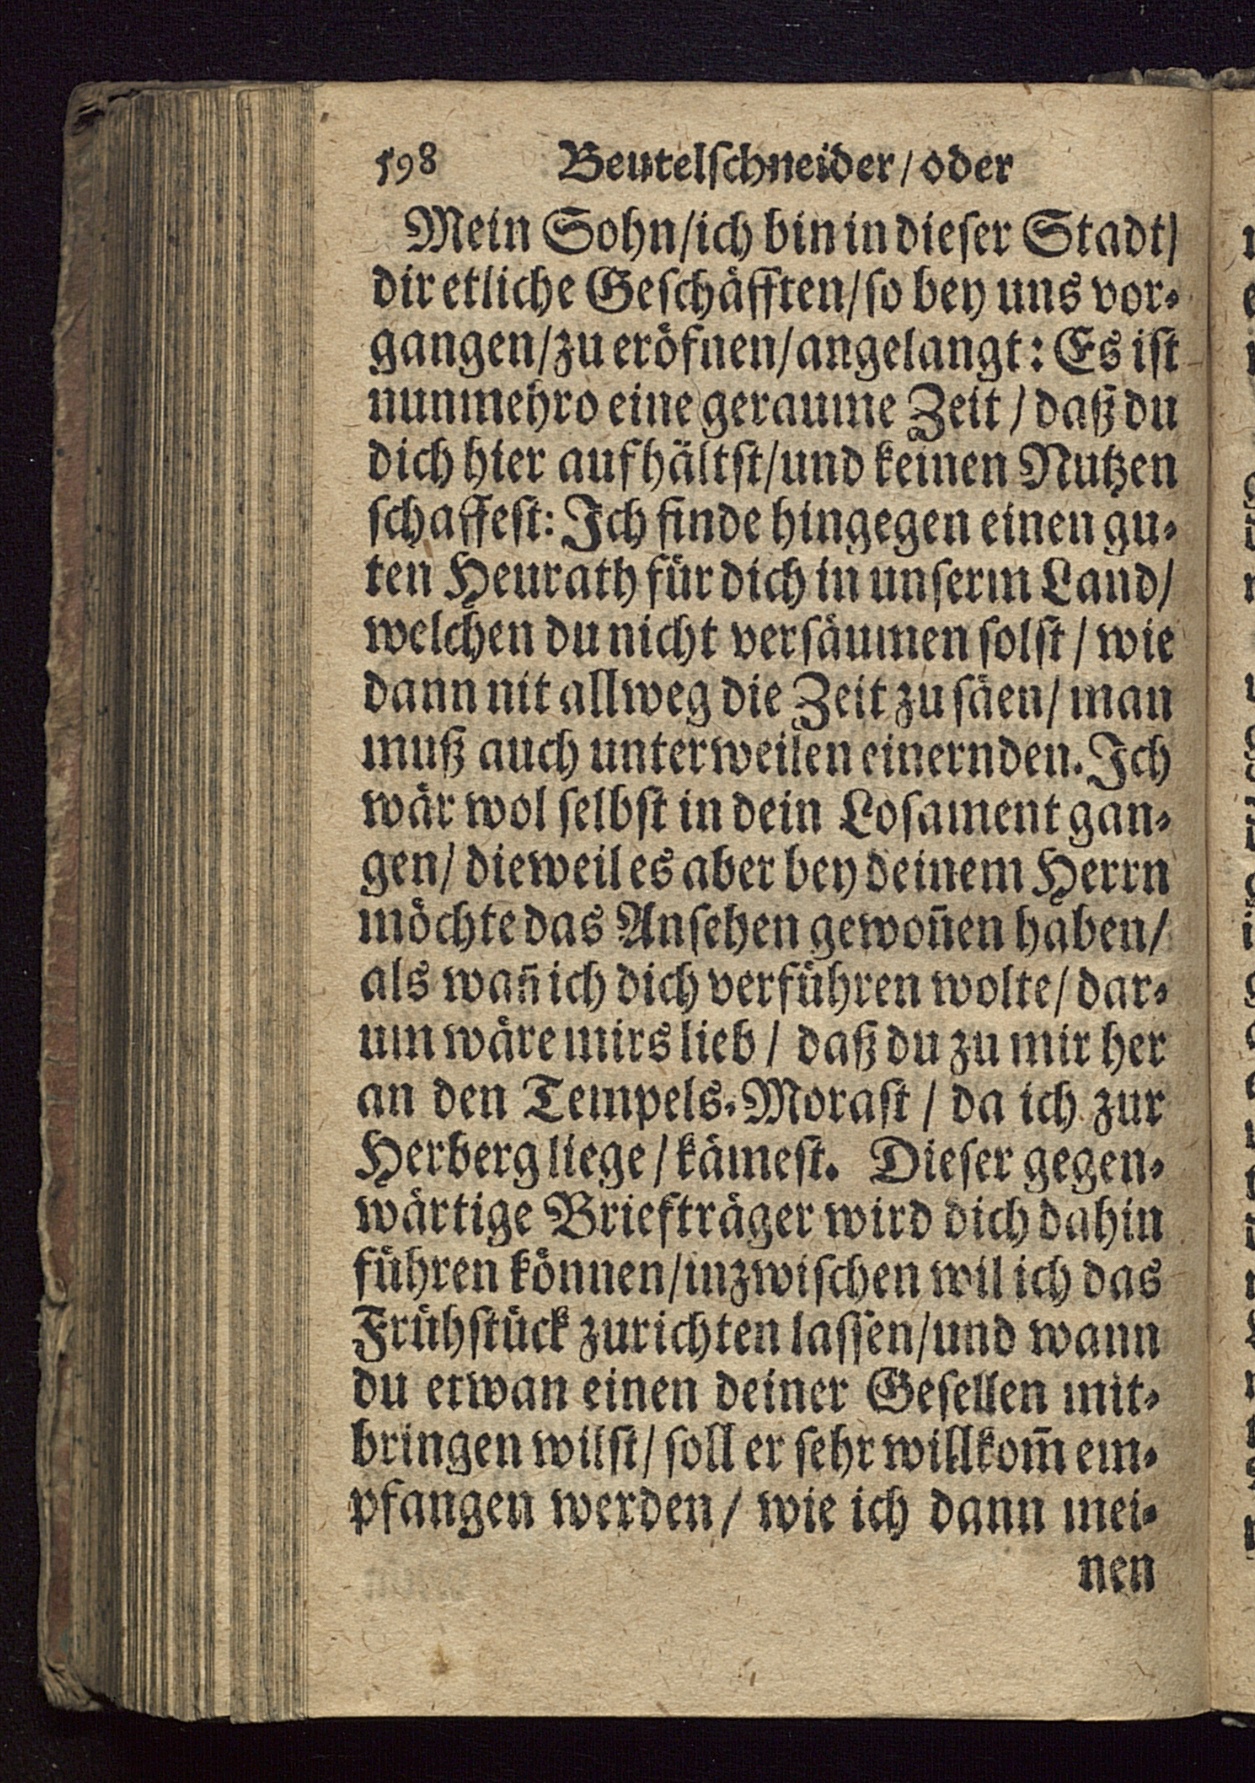 598 Beutelſchneider / oder
Mein Sohn / ich bin in dieſer Stadt /
dir etliche Geſchäfften / ſo bey uns vor⸗
gangen / zu eröfnen / angelangt: Es iſt
nunmehro eine geraume Zeit / daß du
dich hier aufhältſt / und keinen Nutzen
ſchaffeſt: Ich finde hingegen einen gu⸗
ten Heurath für dich in unſerm Land /
welchen du nicht verſäumen ſolſt / wie
dann nit allweg die Zeit zu ſäen / man
muß auch unterweilen einernden. Ich
wär wol ſelbſt in dein Loſament gan⸗
gen / dieweil es aber bey deinem Herrn
möchte das Anſehen gewoñen haben /
als wañ ich dich verführen wolte / dar⸗
um wäre mirs lieb / daß du zu mir her
an den Tempels⸗Moraſt / da ich zur
Herberg liege / kämeſt. Dieſer gegen⸗
wärtige Briefträger wird dich dahin
führen können / inzwiſchen wil ich das
Frühſtück zurichten laſſen / und wann
du etwan einen deiner Geſellen mit⸗
bringen wilſt / ſoll er ſehr willkom̃ em⸗
pfangen werden / wie ich dann mei⸗
nen